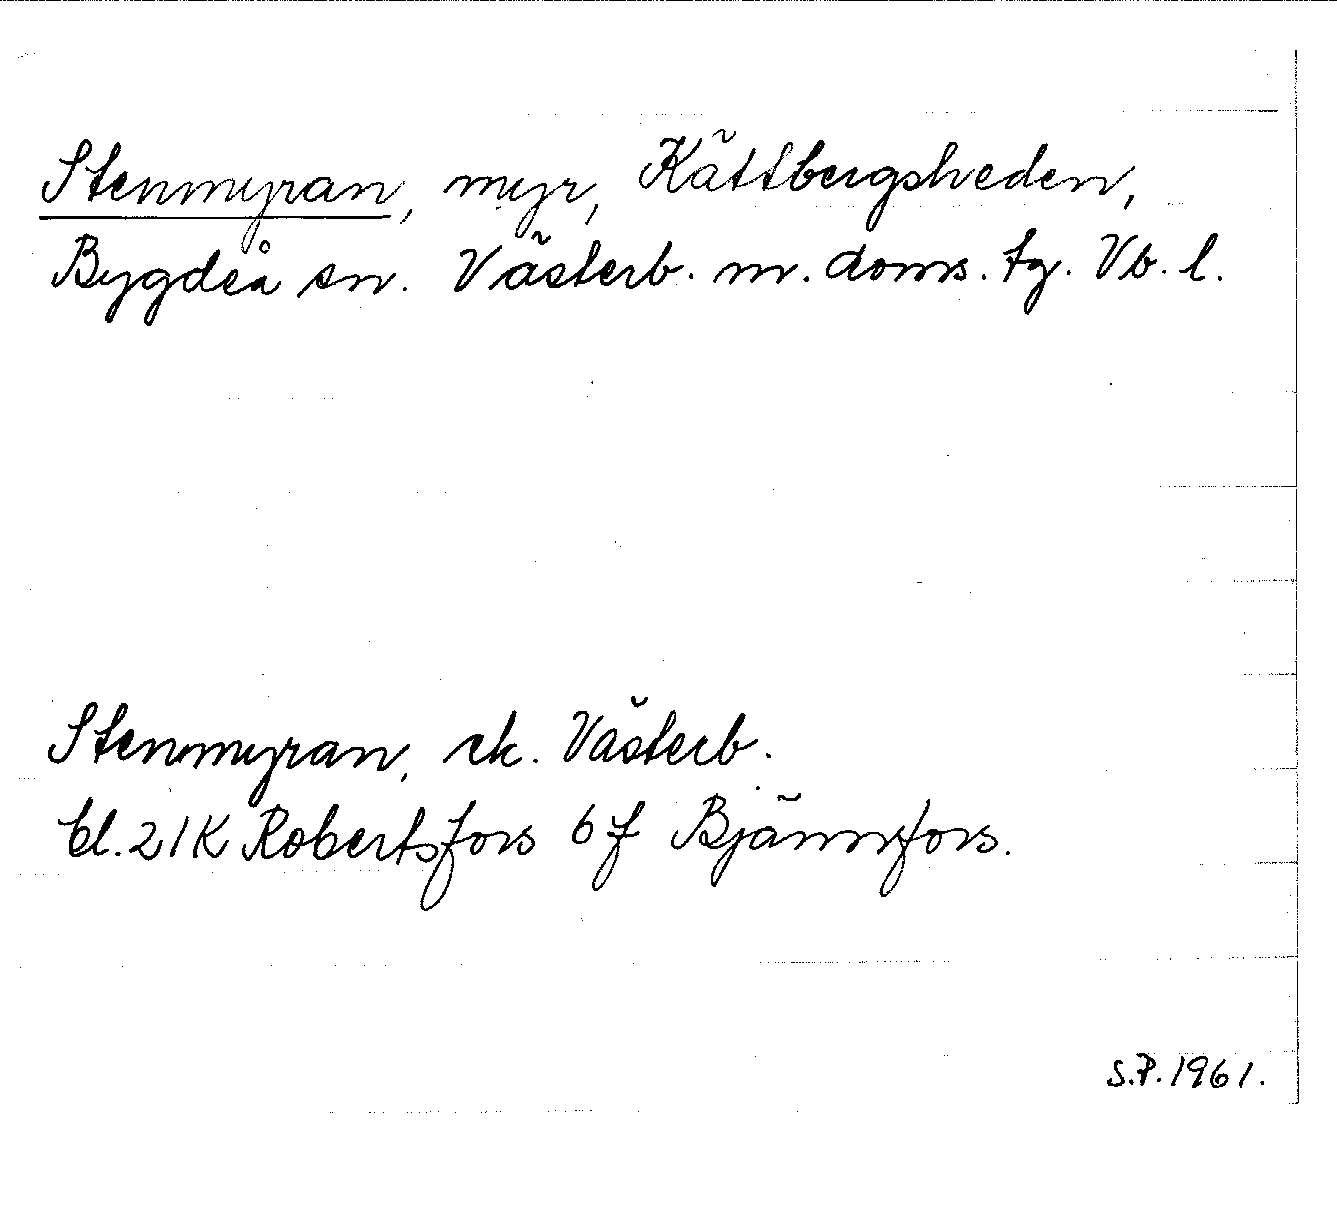 Stenmyran, myr, Kättbergsheden,
Bygdeå sn. Västerb. m. doms. tg. Vb. l.
Stenmyran, rk. Västerb.
bl. 21K Robertsfors 6f Bjännfors.
S.P. 1961.